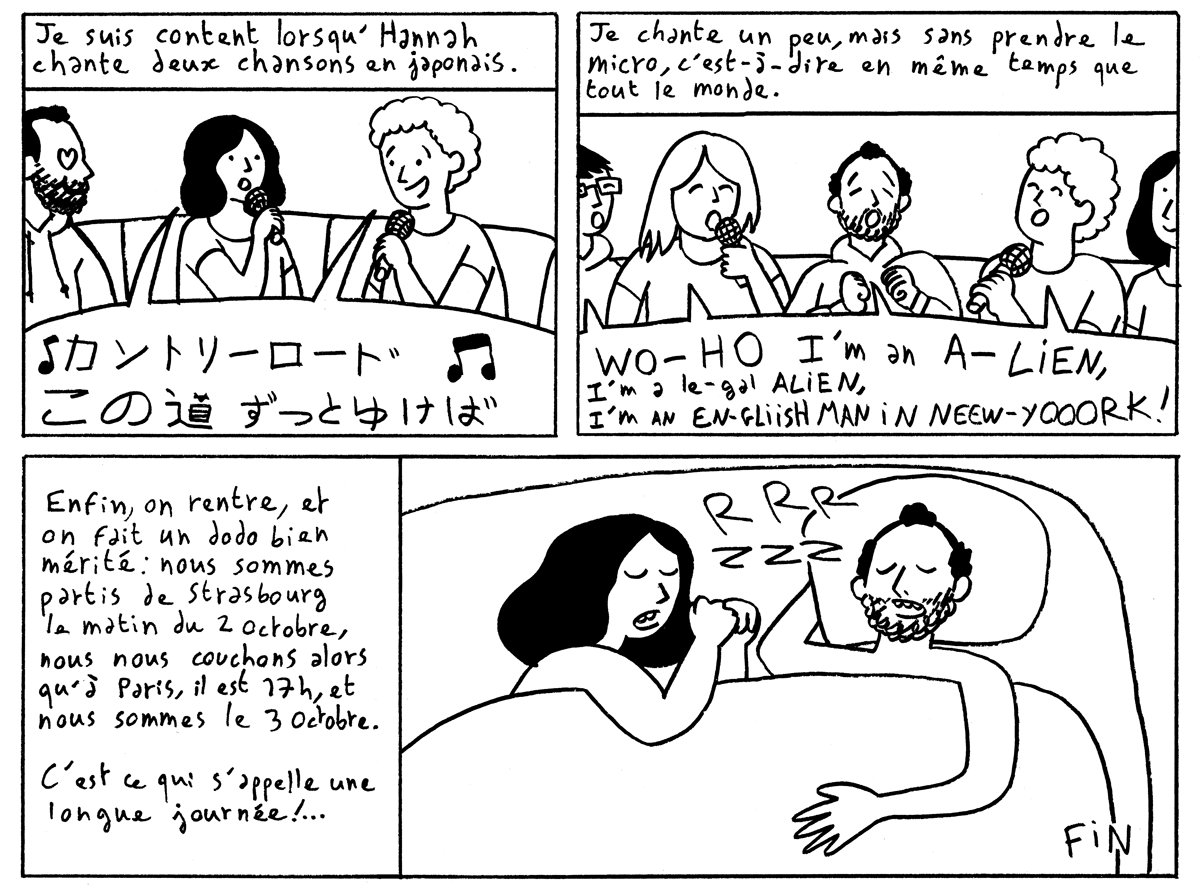 Je suis content lorsqu'Hannah
chante deux chansons en japonais.
♪カントリーロード ♫
この道 ずっとゆけば
Je chante un peu, mais sans prendre le
micro, c'est-à-dire en même temps que
tout le monde.
WO-HO I'm an A-LiEN,
I'm a le-gal ALiEN,
I'm AN EN-GLiiSH MAN iN NEEW-YOOORK!
Enfin, on rentre, et
on fait un dodo bien
mérité: nous sommes
partis de Strasbourg
le matin du 2 octobre,
nous nous couchons alors
qu'à Paris, il est 17h, et
nous sommes le 3 octobre.
C'est ce qui s'appelle une
longue journée!...
R R R
ZZZ
FiN